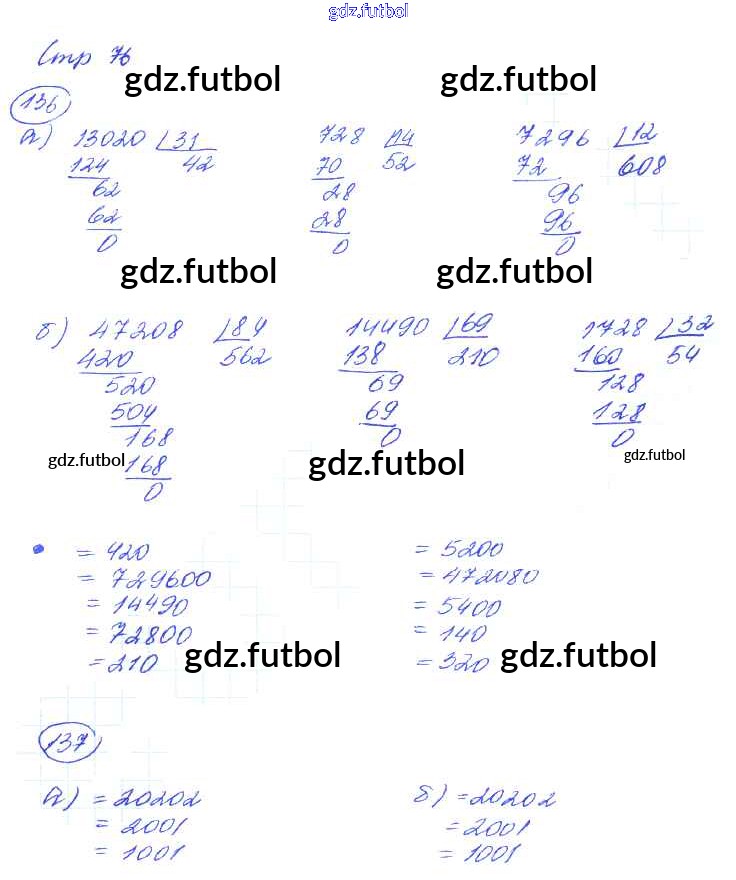 gdz.futbol
Стр 76
gdz.futbol gdz.futbol
136
а) 13020 31 728 14 7296 12
124 42 70 52 72 608
62 28 96
62 28 96
0 0 0
gdz.futbol gdz.futbol
б) 47208 84 14490 69 1728 32
420 562 138 210 160 54
520 69 128
504 69 128
168 0 0
gdz.futbol 168 gdz.futbol gdz.futbol
0
• = 420 = 5200
= 729600 = 472080
= 14490 = 5400
= 72800 = 140
= 210 gdz.futbol = 320 gdz.futbol
137
а) = 20202 б) = 20202
= 2001 = 2001
= 1001 = 1001